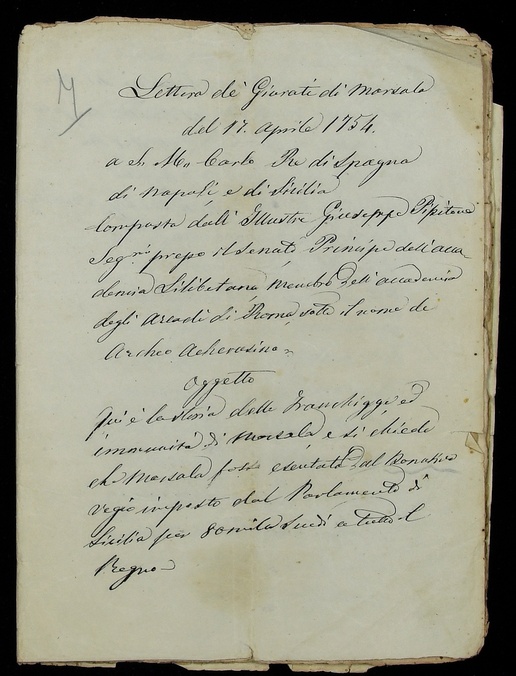 Lettera de' Giurati di Marsala
del 17. Aprile 1754.
a Carlo Re di Spagna
di Napoli, e di Sicilia
Composta dall' Illustre Giuseppe Pipitone
Segr.rio presso il Senato Principe dell'acca-
demia Lilibetana, membro dell'accademia
degli Arcadi di Roma, sotto il nome de
Archeo Acherusino
Oggetto
Qui è la storia delle Franchigge ed
immunità di Marsala e si chiede
che Marsala fosse esentata dal Donativo
regio imposto dal Parlamento di
Sicilia per 80 mila Scudi a tutto il
Regno